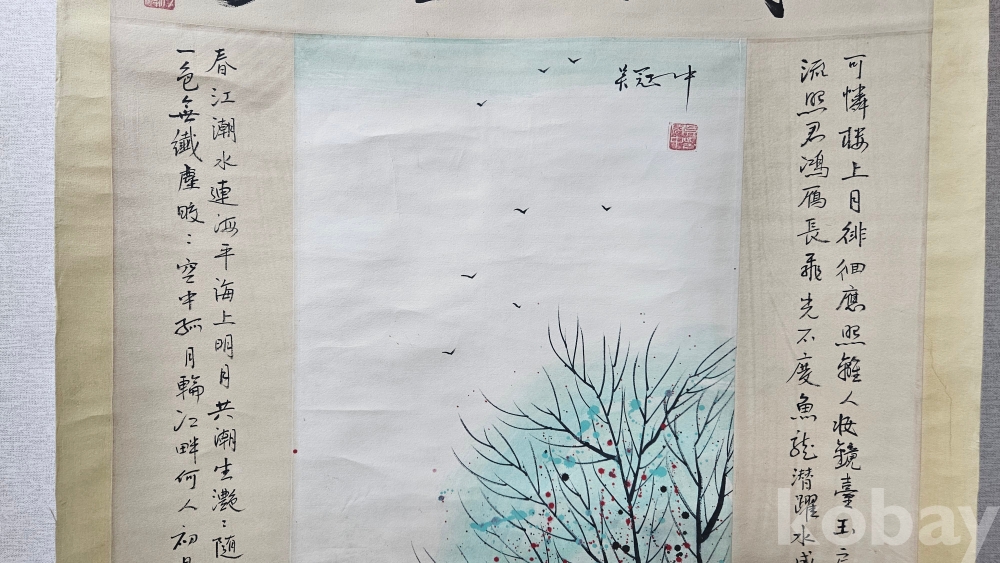 可憐楼上月徘徊應照離人妆鏡臺玉户
流照君鴻雁長飛光不度魚龍潜躍水成
吴冠中
春江潮水連海平海上明月共潮生灔:隨
一色無纖塵皎:空中孤月輪江畔何人初
kobay